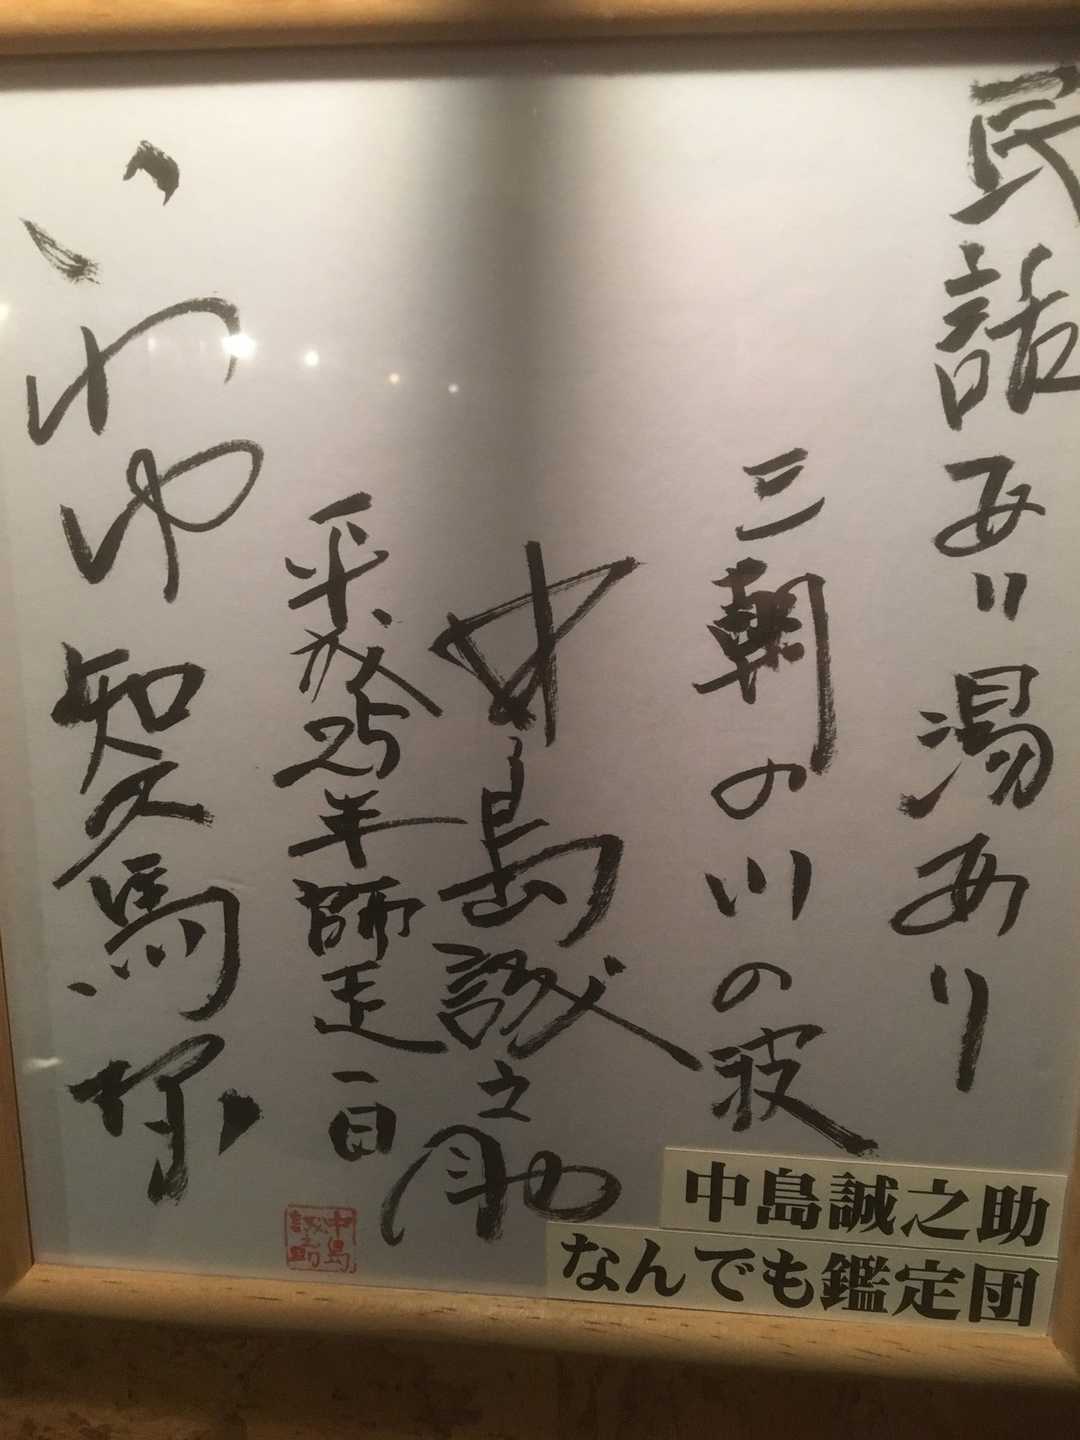 民話あり湯あり
三朝の川の波
中島誠之助
平成25年師走一日
知久馬様
中島
誠之助
中島誠之助
なんでも鑑定団